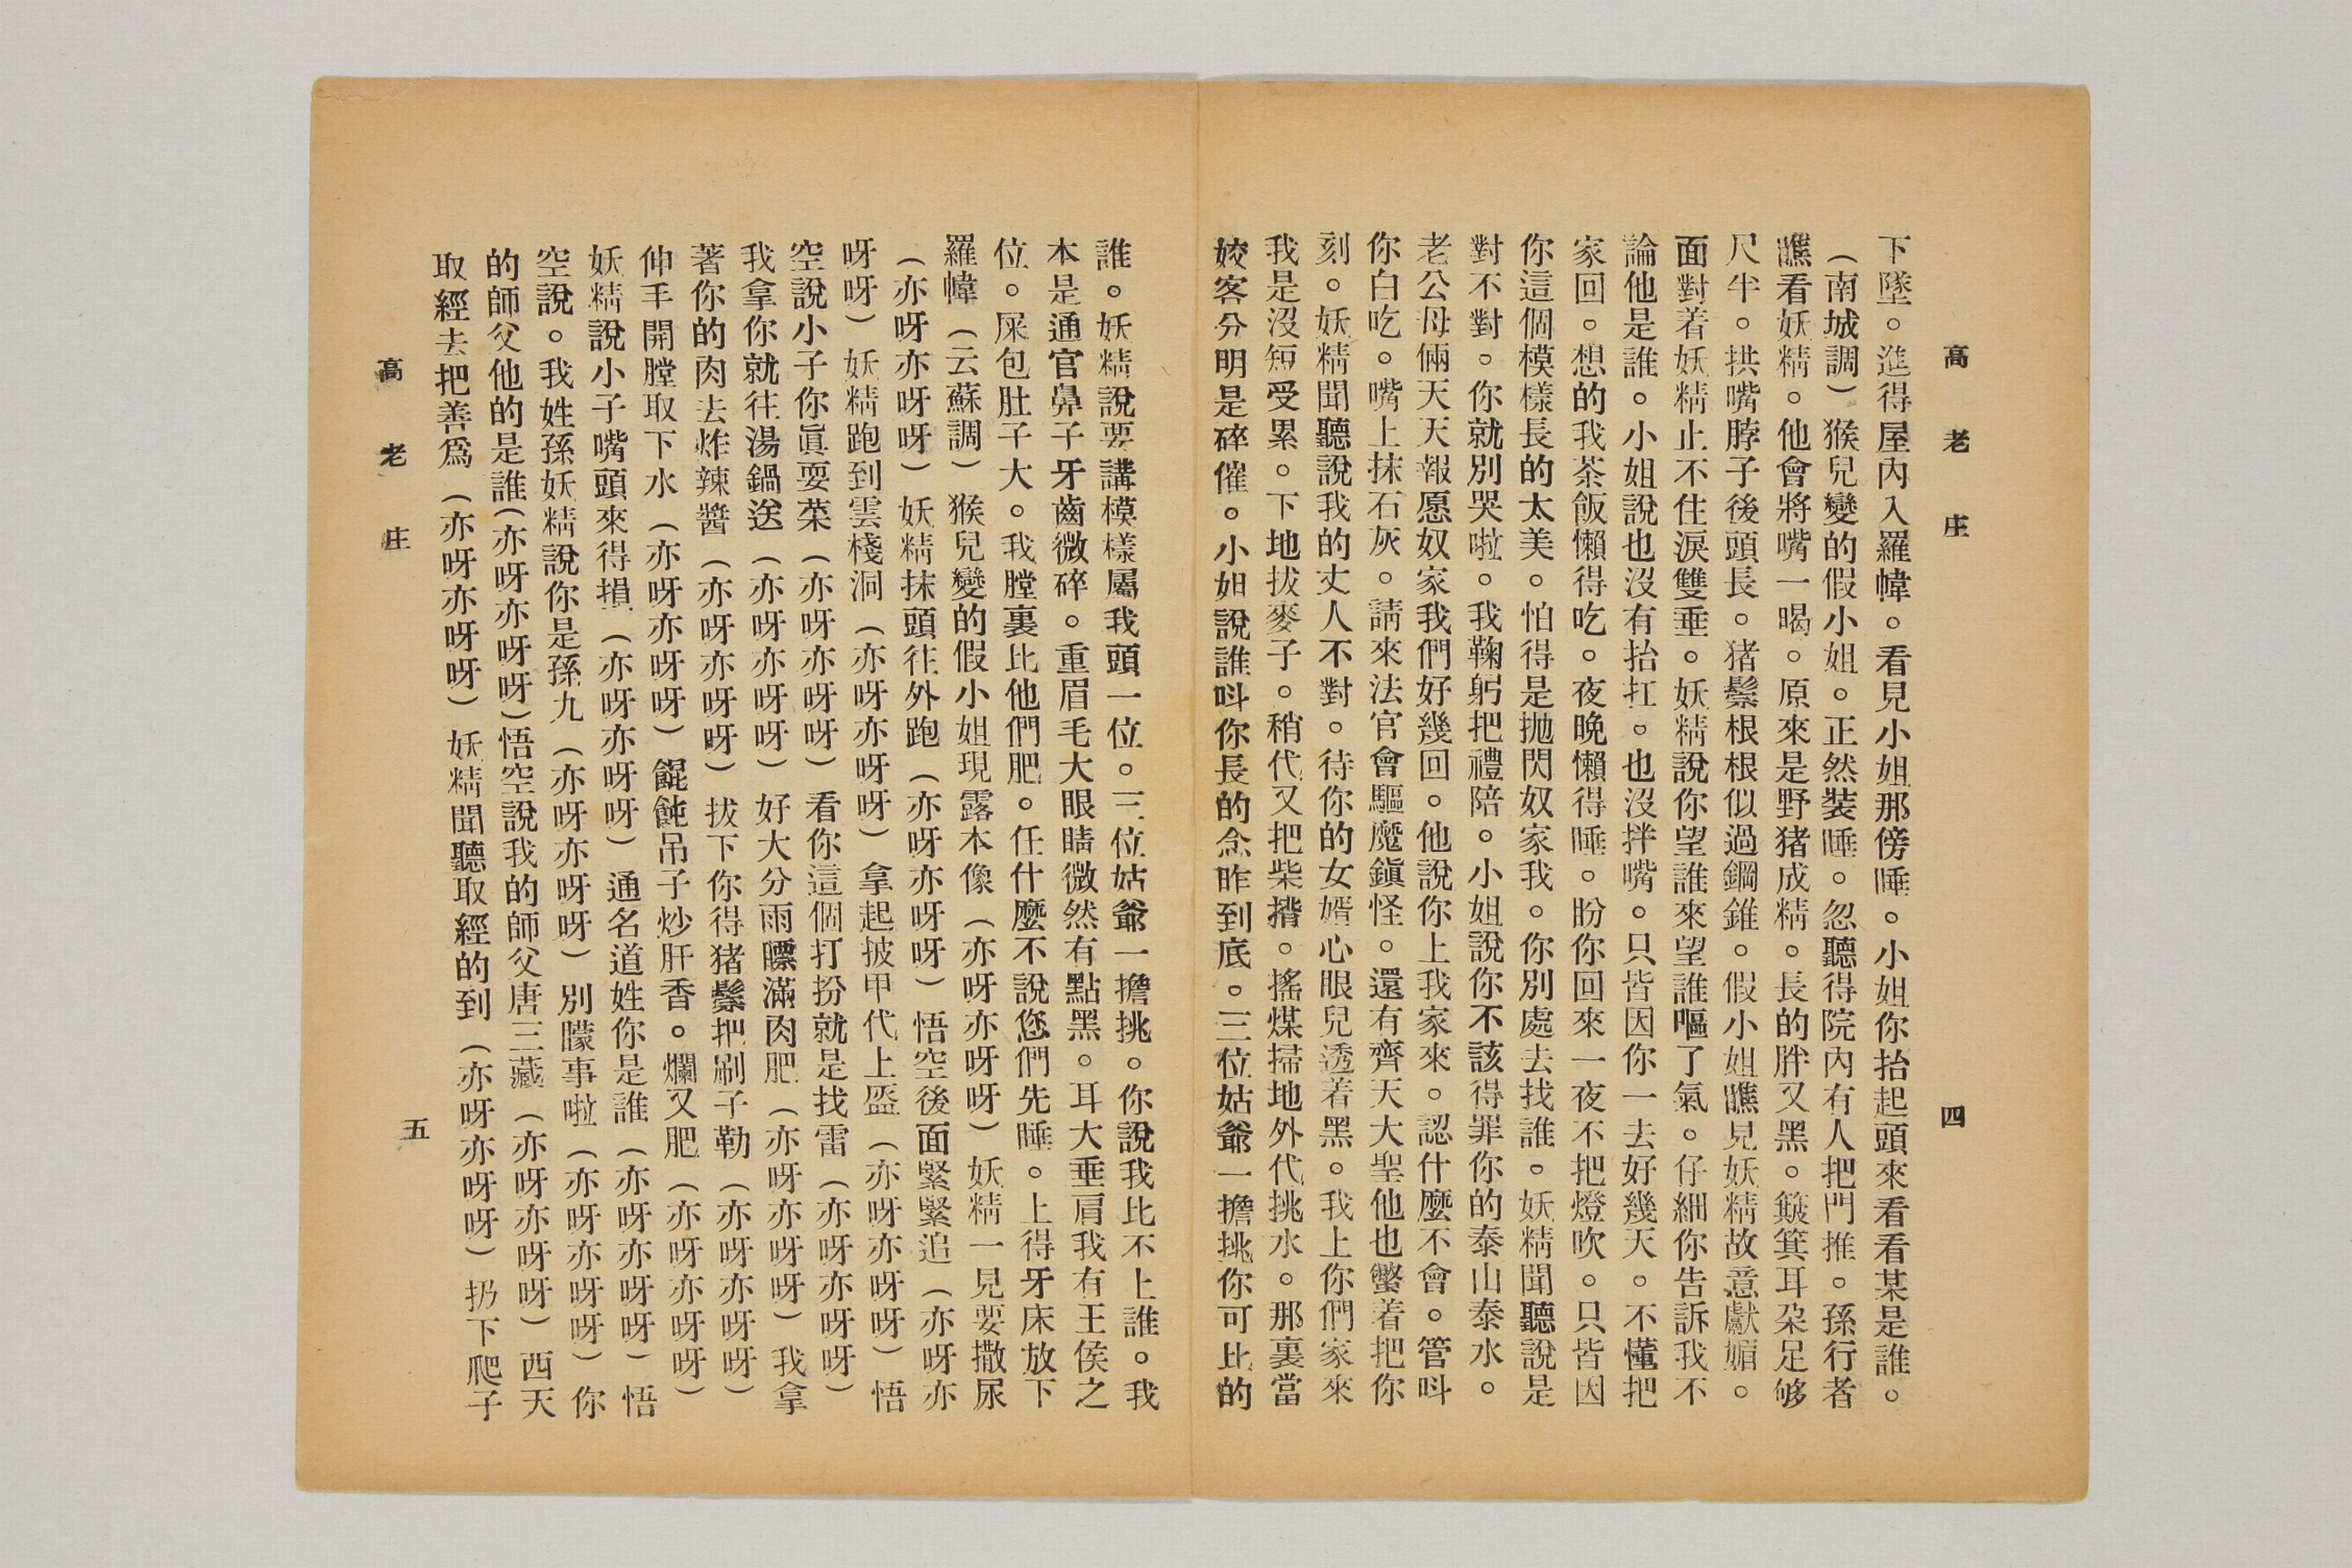 高老庄 四
下墜。進得屋內入羅幃。看見小姐那傍睡。小姐你抬起頭來看看某是誰。
（南城調）猴兒變的假小姐。正然裝睡。忽聽得院內有人把門推。孫行者
瞧看妖精。他會將嘴一喝。原來是野猪成精。長的胖又黑。簸箕耳朶足够
尺半。拱嘴脖子後頭長。猪鬃根根似過鋼錐。假小姐瞧見妖精故意獻媚。
面對着妖精止不住淚雙垂。妖精說你望誰來望誰嘔了氣。仔細你告訴我不
論他是誰。小姐說也沒有抬扛。也沒拌嘴。只皆因你一去好幾天。不懂把
家回。想的我茶飯懶得吃。夜晚懶得睡。盼你回來一夜不把燈吹。只皆因
你這個模樣長的太美。怕得是抛閃奴家我。你別處去找誰。妖精聞聽說是
對不對。你就別哭啦。我鞠躬把禮陪。小姐說你不該得罪你的泰山泰水。
老公母倆天天報愿奴家我們好幾回。他說你上我家來。認什麼不會。管呌
你白吃。嘴上抹石灰。請來法官會驅魔鎭怪。還有齊天大聖他也蟞着把你
刻。妖精聞聽說我的丈人不對。待你的女婿心眼兒透着黑。我上你們家來
我是沒短受累。下地拔麥子。稍代又把柴揹。搖煤掃地外代挑水。那裏當
姣客分明是碎催。小姐說誰呌你長的念昨到底。三位姑爺一擔挑你可比的
誰。妖精說要講模樣屬我頭一位。三位姑爺一擔挑。你說我比不上誰。我
本是通官鼻子牙齒微碎。重眉毛大眼睛微然有點黑。耳大垂肩我有王侯之
位。屎包肚子大。我膛裏比他們肥。任什麼不說您們先睡。上得牙床放下
羅幃（云蘇調）猴兒變的假小姐現露本像（亦呀亦呀呀）妖精一見要撒尿
（亦呀亦呀呀）妖精抹頭往外跑（亦呀亦呀呀）悟空後面緊緊追（亦呀亦
呀呀）妖精跑到雲棧洞（亦呀亦呀呀）拿起披甲代上盔（亦呀亦呀呀）悟
空說小子你眞耍菜（亦呀亦呀呀）看你這個打扮就是找雷（亦呀亦呀呀）
我拿你就往湯鍋送（亦呀亦呀呀）好大分雨膘滿肉肥（亦呀亦呀呀）我拿
著你的肉去炸辣醬（亦呀亦呀呀）拔下你得猪鬃把刷子勒（亦呀亦呀呀）
伸手開膛取下水（亦呀亦呀呀）餛飩吊子炒肝香。爛又肥（亦呀亦呀呀）
妖精說小子嘴頭來得損（亦呀亦呀呀）通名道姓你是誰（亦呀亦呀呀）悟
空說。我姓孫妖精說你是孫九（亦呀亦呀呀）別朦事啦（亦呀亦呀呀）你
的師父他的是誰（亦呀亦呀呀）悟空說我的師父唐三藏（亦呀亦呀呀）西天
取經去把善爲（亦呀亦呀呀）妖精聞聽取經的到（亦呀亦呀呀）扔下爬子
高老庄 五